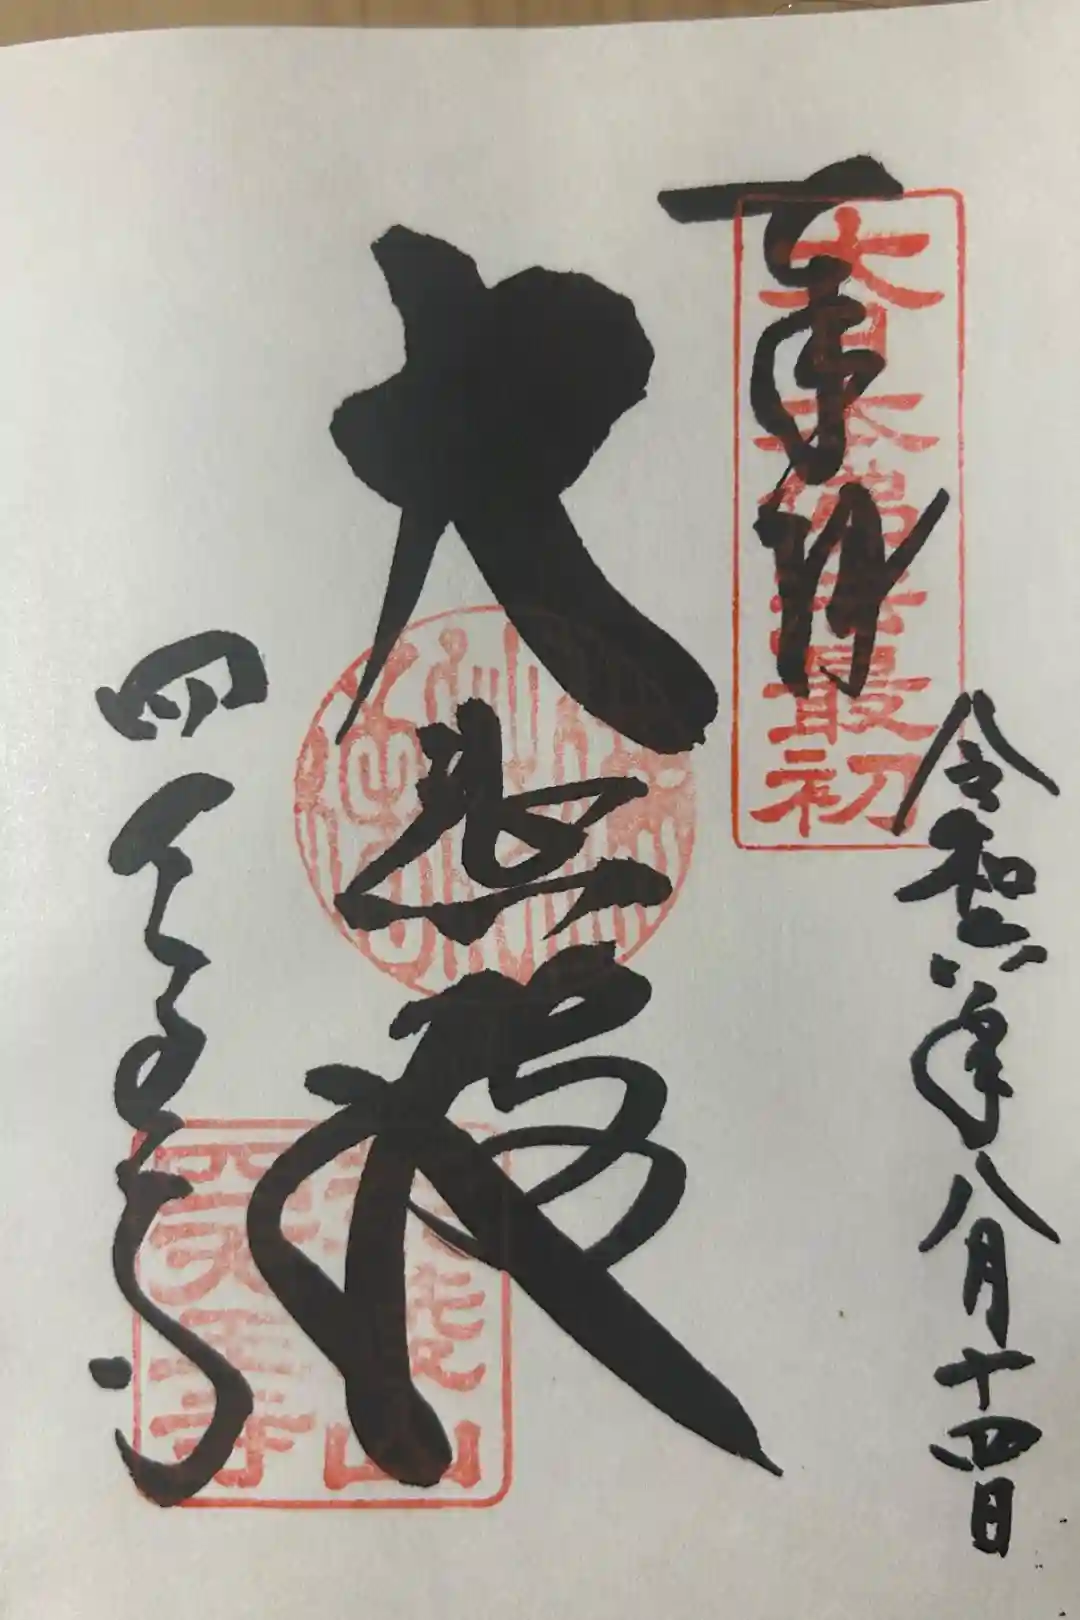 奉拝
大日本佛法最初
令和六年八月十四日
大悲殿
四天王寺
荒陵山
四天王寺